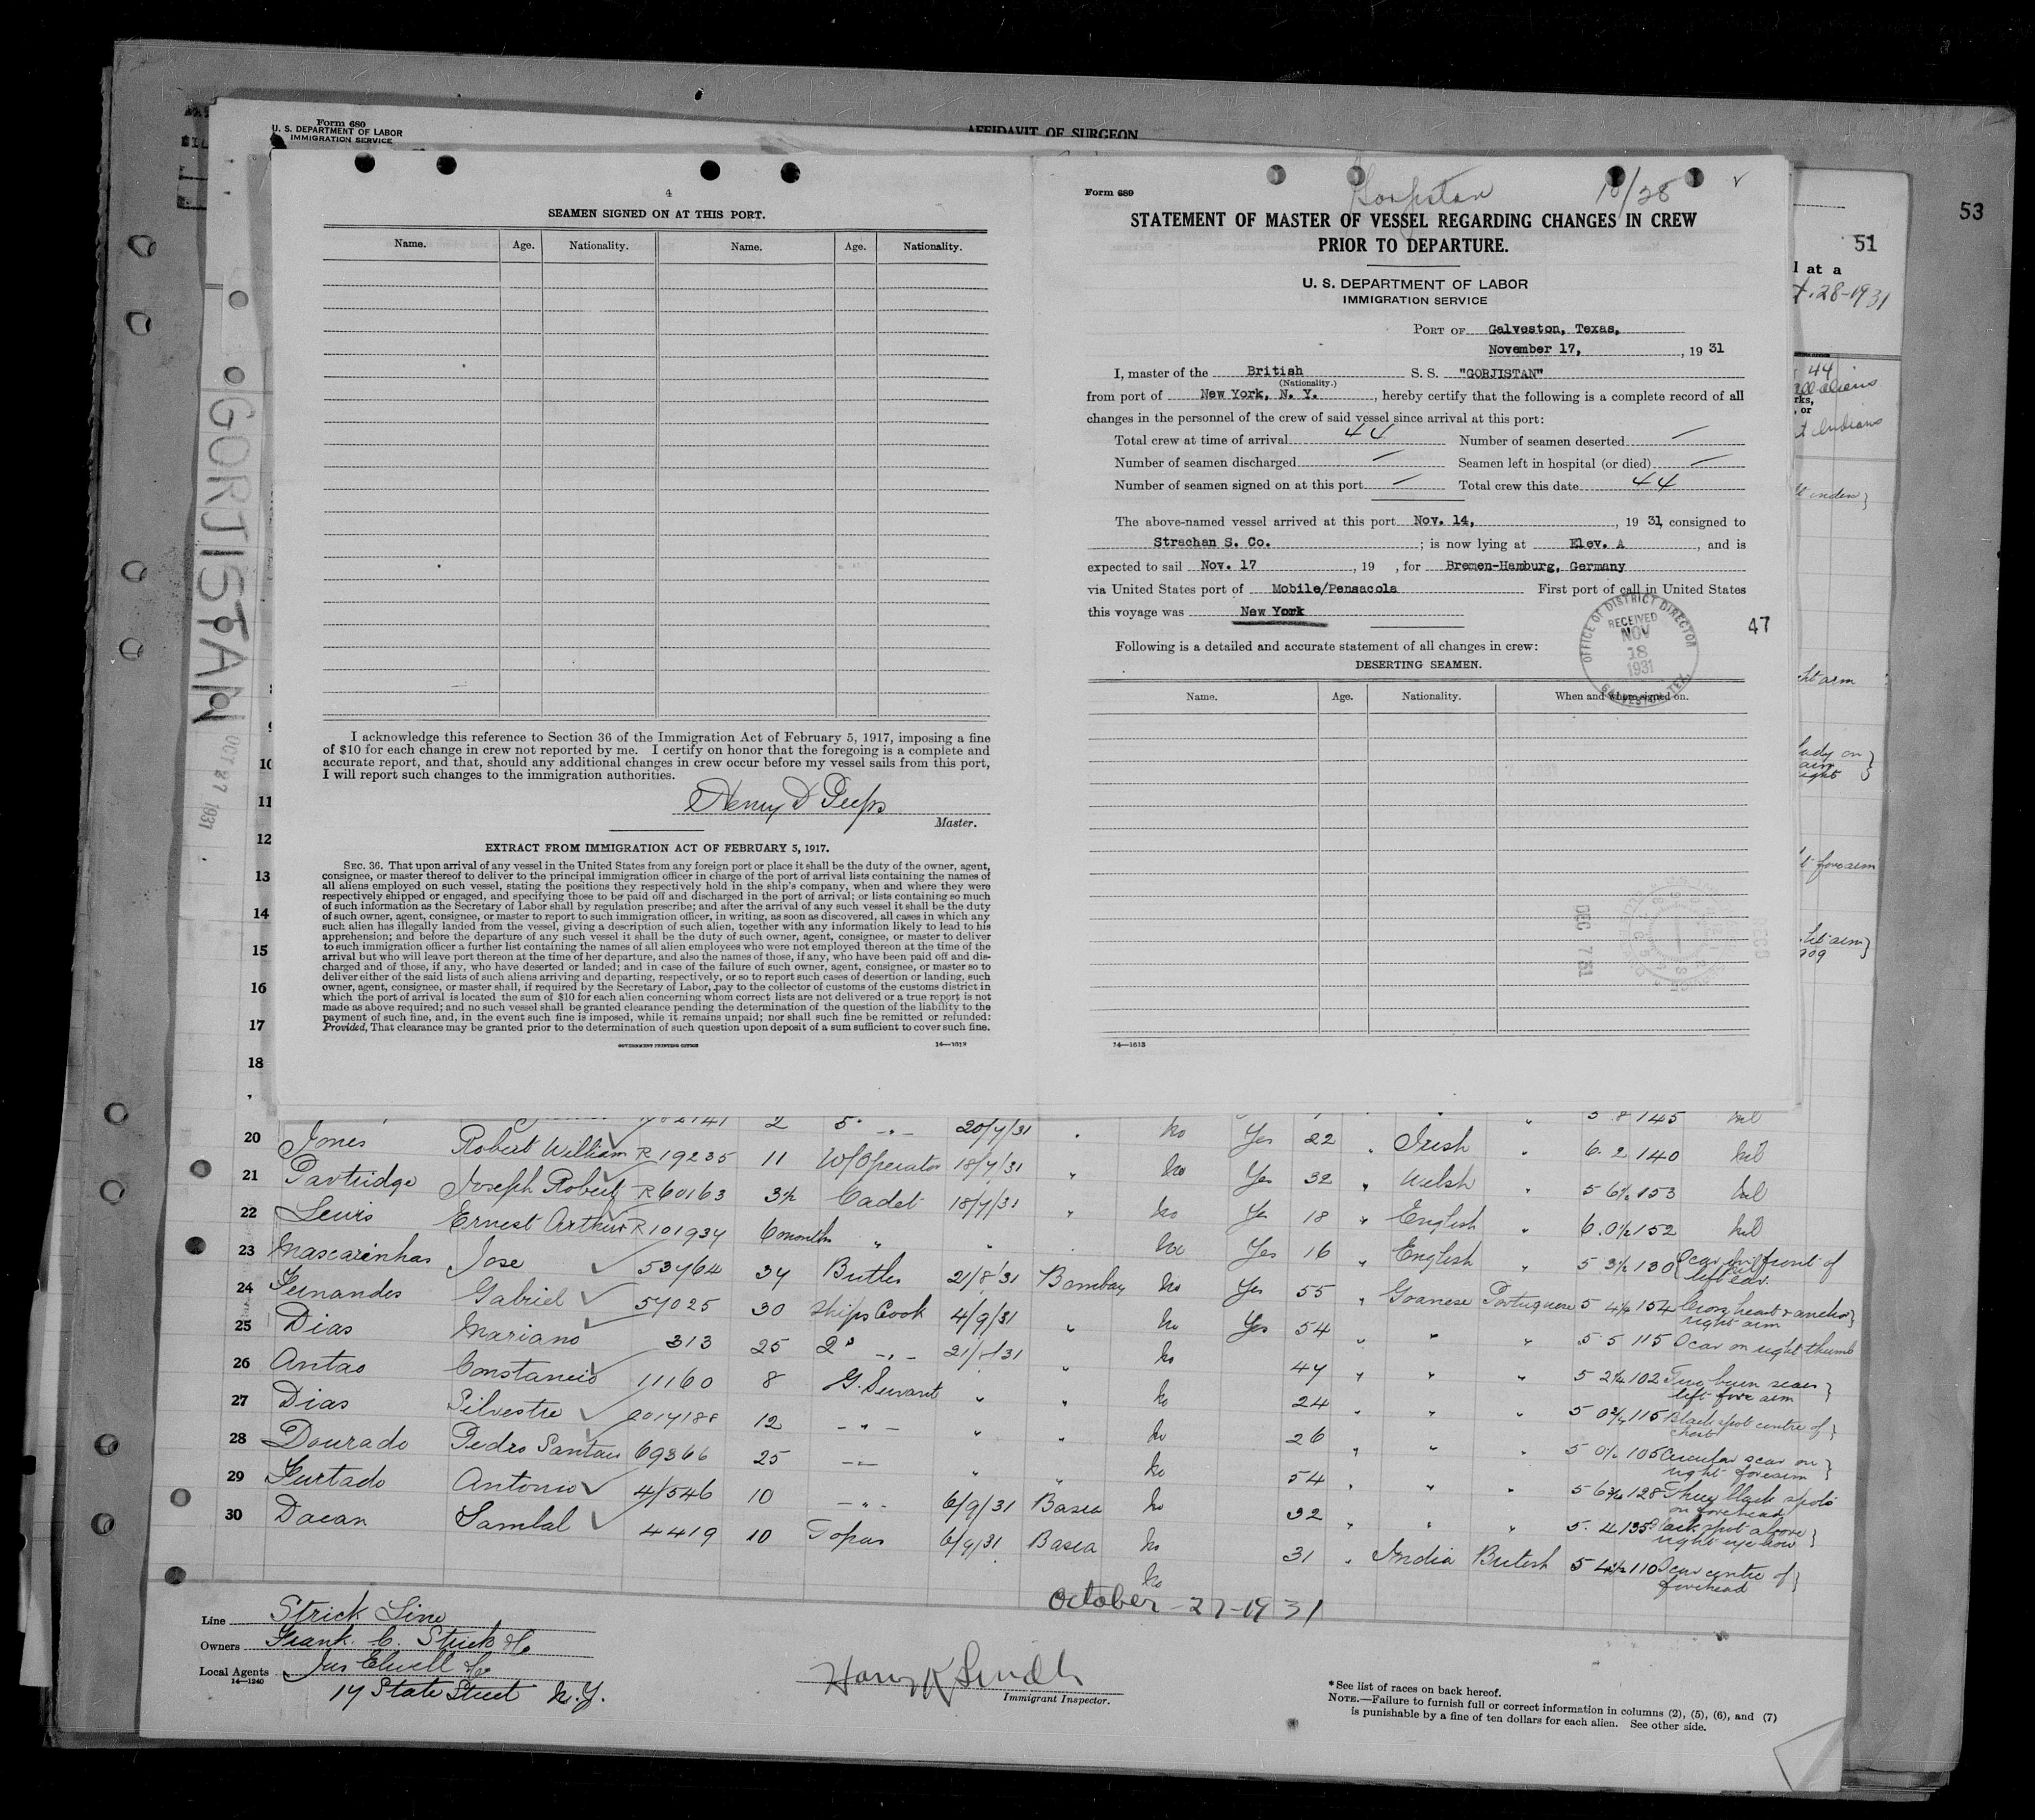 Form 680
U. S. DEPARTMENT OF LABOR
IMMIGRATION SERVICE
AFFIDAVIT OF SURGEON
53
51
l at a
28-1931
44
all aliens
rks,
, or
t Indians
GORJISTAN
OCT 27 1931
4
SEAMEN SIGNED ON AT THIS PORT.
Name. Age. Nationality. Name. Age. Nationality.
I acknowledge this reference to Section 36 of the Immigration Act of February 5, 1917, imposing a fine
of $10 for each change in crew not reported by me. I certify on honor that the foregoing is a complete and
accurate report, and that, should any additional changes in crew occur before my vessel sails from this port,
I will report such changes to the immigration authorities.
Henry D
Master.
EXTRACT FROM IMMIGRATION ACT OF FEBRUARY 5, 1917.
SEC. 36. That upon arrival of any vessel in the United States from any foreign port or place it shall be the duty of the owner, agent,
consignee, or master thereof to deliver to the principal immigration officer in charge of the port of arrival lists containing the names of
all aliens employed on such vessel, stating the positions they respectively hold in the ship's company, when and where they were
respectively shipped or engaged, and specifying those to be paid off and discharged in the port of arrival; or lists containing so much
of such information as the Secretary of Labor shall by regulation prescribe; and after the arrival of any such vessel it shall be the duty
of such owner, agent, consignee, or master to report to such immigration officer, in writing, as soon as discovered, all cases in which any
such alien has illegally landed from the vessel, giving a description of such alien, together with any information likely to lead to his
apprehension; and before the departure of any such vessel it shall be the duty of such owner, agent, consignee, or master to deliver
to such immigration officer a further list containing the names of all alien employees who were not employed thereon at the time of the
arrival but who will leave port thereon at the time of her departure, and also the names of those, if any, who have been paid off and dis-
charged and of those, if any, who have deserted or landed; and in case of the failure of such owner, agent, consignee, or master so to
deliver either of the said lists of such aliens arriving and departing, respectively, or so to report such cases of desertion or landing, such
owner, agent, consignee, or master shall, if required by the Secretary of Labor, pay to the collector of customs of the customs district in
which the port of arrival is located the sum of $10 for each alien concerning whom correct lists are not delivered or a true report is not
made as above required; and no such vessel shall be granted clearance pending the determination of the question of the liability to the
payment of such fine, and, in the event such fine is imposed, while it remains unpaid; nor shall such fine be remitted or refunded:
Provided, That clearance may be granted prior to the determination of such question upon deposit of a sum sufficient to cover such fine.
GOVERNMENT PRINTING OFFICE 14—1613
Form 680 10/28
STATEMENT OF MASTER OF VESSEL REGARDING CHANGES IN CREW
PRIOR TO DEPARTURE.
U. S. DEPARTMENT OF LABOR
IMMIGRATION SERVICE
PORT OF Galveston, Texas,
November 17, , 19 31
I, master of the British S. S. "GORJISTAN"
(Nationality.)
from port of New York, N. Y. , hereby certify that the following is a complete record of all
changes in the personnel of the crew of said vessel since arrival at this port:
Total crew at time of arrival 44 Number of seamen deserted —
Number of seamen discharged — Seamen left in hospital (or died) —
Number of seamen signed on at this port — Total crew this date 44
The above-named vessel arrived at this port Nov. 14, , 19 31 consigned to
Strachan S. Co. ; is now lying at Elev. A , and is
expected to sail Nov. 17 , 19 , for Bremen-Hamburg, Germany
via United States port of Mobile/Pensacola First port of call in United States
this voyage was New York
47
OFFICE OF DISTRICT DIRECTOR
RECEIVED
NOV
18
1931
GALVESTON, TEX.
Following is a detailed and accurate statement of all changes in crew:
DESERTING SEAMEN.
Name. Age. Nationality. When and where signed on.
DEC 7 31
REC'D
14—1613
10
11
12
13
14
15
16
17
18
2 5" 20/7/31 5 8 145 nil
20 Jones Robert William R 19235 11 W/Operator 18/7/31 " no Yes 22 " Irish " 6. 2 140 nil
21 Partridge Joseph Robert R 60163 3½ Cadet 18/7/31 " no Yes 32 " Welsh " 5 6½ 153 nil
22 Lewis Ernest Arthur R 101934 6 months " " no Yes 18 " English " 6. 0½ 152 nil
23 Mascarinhas Jose 53764 34 Butler 21/8/31 Bombay no Yes 16 " English " 5 3½ 130 Scar in front of left ear
24 Fernandes Gabriel 57025 30 Ships Cook 4/9/31 " no Yes 55 " Goanese Portuguese 5 4¼ 154 Cross heart & anchor right arm
25 Dias Mariano 313 25 2" " 21/8/31 " no Yes 54 " " " 5 5 115 Scar on right thumb
26 Antao Constancio 11160 8 G. Servant " " no 47 " " " 5 2¼ 102 Two burn scars left fore arm
27 Dias Silvestre 12 " " " no 24 " " " 115 Black spot centre of chest
28 Dourado Pedro Santan 69366 25 " " " no 26 " " " 105 Circular scar on right forearm
29 Furtado Antonio 41546 10 " 6/9/31 Basra no 54 " " " 128 Three black spots on forehead
30 Daean Sambal 4419 10 Topas 6/9/31 Basra no 32 " " " 5. 4 135 Black spot above right eye brow
no 31 " India British 110 Scar centre of forehead
October-27-1931
Line Strick Line
Owners Frank C. Strick & Co
Local Agents Jas Elwell & Co
14—1240
17 State Street N.Y.
Immigrant Inspector.
* See list of races on back hereof.
NOTE.—Failure to furnish full or correct information in columns (2), (5), (6), and (7)
is punishable by a fine of ten dollars for each alien. See other side.